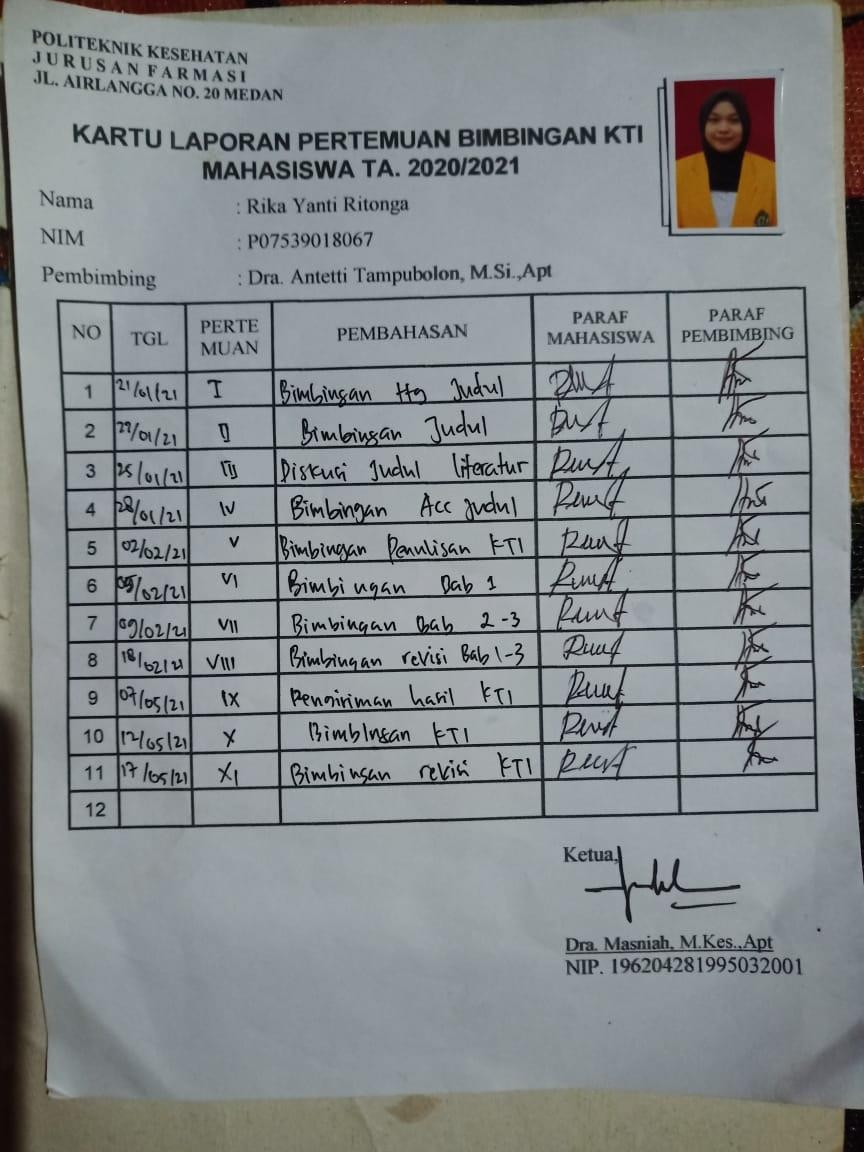 POLITEKNIK KESEHATAN
JURUSAN FARMASI
JL. AIRLANGGA NO. 20 MEDAN
KARTU LAPORAN PERTEMUAN BIMBINGAN KTI
MAHASISWA TA. 2020/2021
Nama : Rika Yanti Ritonga
NIM : P07539018067
Pembimbing : Dra. Antetti Tampubolon, M.Si.,Apt
NO TGL PERTE MUAN PEMBAHASAN PARAF MAHASISWA PARAF PEMBIMBING
1 21/01/21 I Bimbingan Htg Judul
2 22/01/21 II Bimbingan Judul
3 25/01/21 III Diskusi Judul literatur
4 28/01/21 IV Bimbingan Acc Judul
5 02/02/21 V Bimbingan Penulisan KTI
6 05/02/21 VI Bimbingan Bab 1
7 09/02/21 VII Bimbingan Bab 2-3
8 18/02/21 VIII Bimbingan revisi Bab 1-3
9 07/05/21 IX Pengiriman hasil KTI
10 12/05/21 X Bimbingan KTI
11 17/05/21 XI Bimbingan revisi KTI
12
Ketua,
Dra. Masniah, M.Kes.,Apt
NIP. 196204281995032001